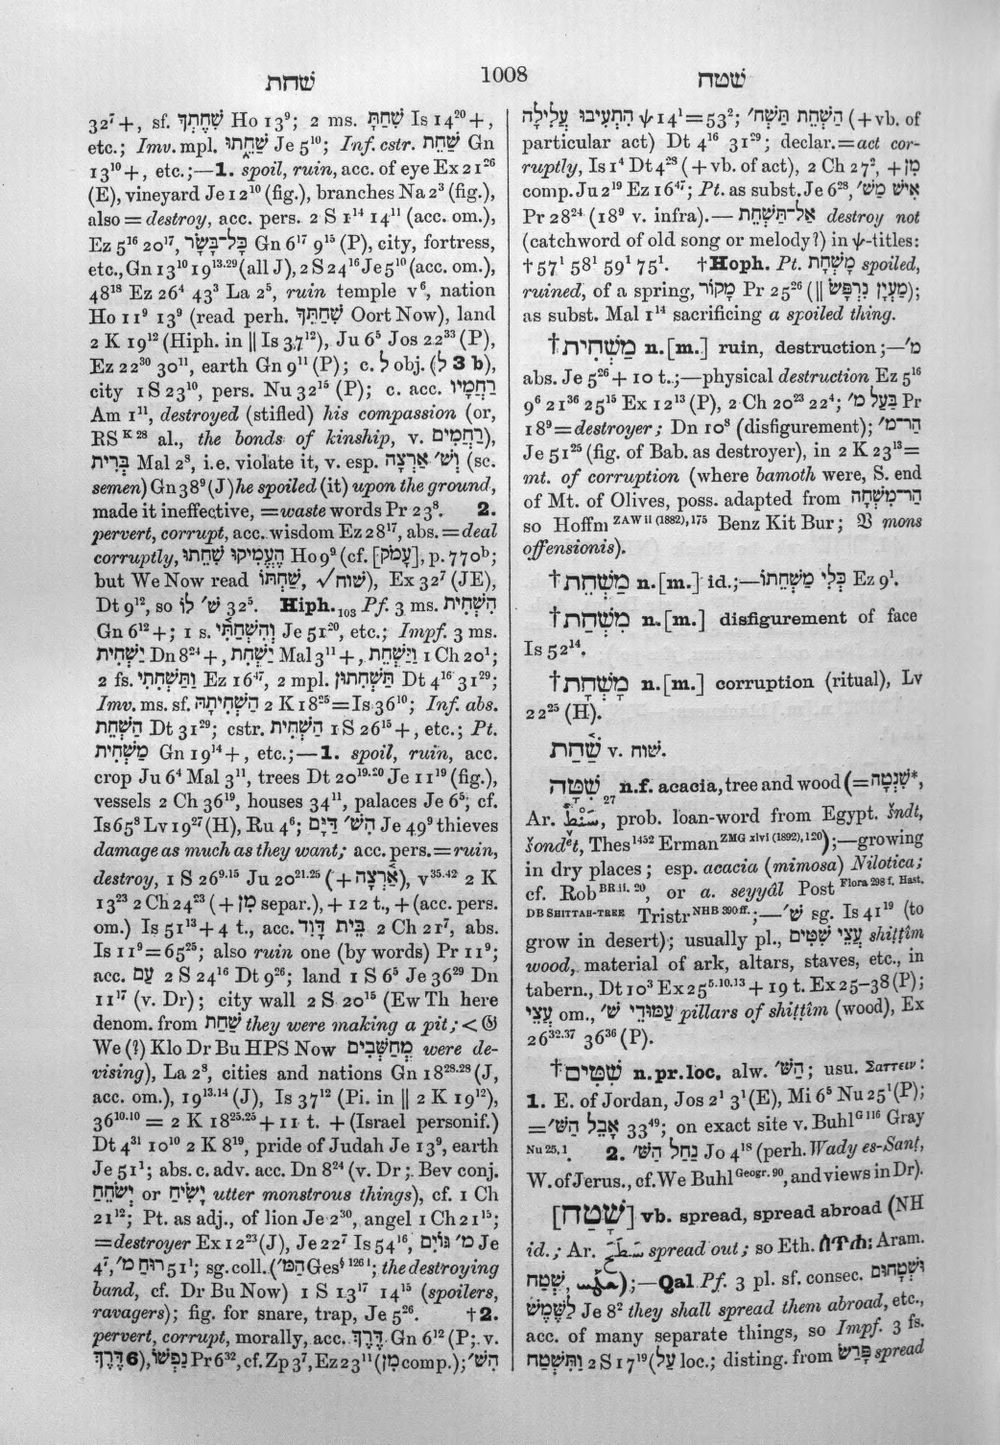 שחת 1008 שטח
32⁷+, sf. שִׁחֶתְךָ Ho 13⁹; 2 ms. שִׁחַתָּ Is 14²⁰+,
etc.; Imv. mpl. שַׁחֵתוּ Je 5¹⁰; Inf. cstr. שַׁחֵת Gn
13¹⁰+, etc.;—1. spoil, ruin, acc. of eye Ex 21²⁶
(E), vineyard Je 12¹⁰ (fig.), branches Na 2³ (fig.),
also = destroy, acc. pers. 2 S 1¹⁴ 14¹¹ (acc. om.),
Ez 5¹⁶ 20¹⁷, כָּל־בָּשָׂר Gn 6¹⁷ 9¹⁵ (P), city, fortress,
etc., Gn 13¹⁰ 19¹³·²⁹ (all J), 2 S 24¹⁶ Je 5¹⁰ (acc. om.),
48¹⁸ Ez 26⁴ 43³ La 2⁵, ruin temple v⁶, nation
Ho 11⁹ 13⁹ (read perh. שִׁחַתִּךָ Oort Now), land
2 K 19¹² (Hiph. in || Is 37¹²), Ju 6⁵ Jos 22³³ (P),
Ez 22³⁰ 30¹¹, earth Gn 9¹¹ (P); c. לְ obj. (לְ 3 b),
city 1 S 23¹⁰, pers. Nu 32¹⁵ (P); c. acc. רַחֲמָיו
Am 1¹¹, destroyed (stifled) his compassion (or,
RS ᴷ ²⁸ al., the bonds of kinship, v. רַחֲמִים),
בְּרִית Mal 2⁸, i.e. violate it, v. esp. וְשׁ׳ אַרְצָה (sc.
semen) Gn 38⁹ (J) he spoiled (it) upon the ground,
made it ineffective, = waste words Pr 23⁸. 2.
pervert, corrupt, acc. wisdom Ez 28¹⁷, abs. = deal
corruptly, הֶעֱמִיקוּ שִׁחֵתוּ Ho 9⁹ (cf. [עָמֹק], p. 770ᵇ;
but We Now read שַׁחְתּוֹ, √שׁוח), Ex 32⁷ (JE),
Dt 9¹², so שׁ׳ לוֹ 32⁵. Hiph.₁₀₃ Pf. 3 ms. הִשְׁחִית
Gn 6¹²+; 1 s. וְהִשְׁחַתִּי Je 51²⁰, etc.; Impf. 3 ms.
יַשְׁחִית Dn 8²⁴+, יַשְׁחִת Mal 3¹¹+, וַיַּשְׁחֵת 1 Ch 20¹;
2 fs. וַתַּשְׁחִתִי Ez 16⁴⁷, 2 mpl. תַּשְׁחִתוּן Dt 4¹⁶ 31²⁹;
Imv. ms. sf. הַשְׁחִיתָהּ 2 K 18²⁵=Is 36¹⁰; Inf. abs.
הַשְׁחֵת Dt 31²⁹; cstr. הַשְׁחִית 1 S 26¹⁵+, etc.; Pt.
מַשְׁחִית Gn 19¹⁴+, etc.;—1. spoil, ruin, acc.
crop Ju 6⁴ Mal 3¹¹, trees Dt 20¹⁹·²⁰ Je 11¹⁹ (fig.),
vessels 2 Ch 36¹⁹, houses 34¹¹, palaces Je 6⁵; cf.
Is 65⁸ Lv 19²⁷ (H), Ru 4⁶; הִשׁ׳ דַּיָּם Je 49⁹ thieves
damage as much as they want; acc. pers. = ruin,
destroy, 1 S 26⁹·¹⁵ Ju 20²¹·²⁵ (+אַרְצָה), v³⁵·⁴² 2 K
13²³ 2 Ch 24²³ (+מִן separ.), + 12 t., + (acc. pers.
om.) Is 51¹³+4 t., acc. בֵּית דָּוִד 2 Ch 21⁷, abs.
Is 11⁹=65²⁵; also ruin one (by words) Pr 11⁹;
acc. עַם 2 S 24¹⁶ Dt 9²⁶; land 1 S 6⁵ Je 36²⁹ Dn
11¹⁷ (v. Dr); city wall 2 S 20¹⁵ (Ew Th here
denom. from שַׁחַת they were making a pit; < 𝔊
We (?) Klo Dr Bu HPS Now מְחַשְּׁבִים were de-
vising), La 2⁸, cities and nations Gn 18²⁸·²⁸ (J,
acc. om.), 19¹³·¹⁴ (J), Is 37¹² (Pi. in || 2 K 19¹²),
36¹⁰·¹⁰ = 2 K 18²⁵·²⁵+11 t. + (Israel personif.)
Dt 4³¹ 10¹⁰ 2 K 8¹⁹, pride of Judah Je 13⁹, earth
Je 51¹; abs. c. adv. acc. Dn 8²⁴ (v. Dr; Bev conj.
יְשֹׂחֵחַ or יָשִׂיחַ utter monstrous things), cf. 1 Ch
21¹²; Pt. as adj., of lion Je 2³⁰, angel 1 Ch 21¹⁵;
=destroyer Ex 12²³ (J), Je 22⁷ Is 54¹⁶, מ׳ גּוֹיִם Je
4⁷, רוּחַ מ׳ 51¹; sg. coll. (הַמּ׳ Ges§ ¹²⁶ ˡ; the destroying
band, cf. Dr Bu Now) 1 S 13¹⁷ 14¹⁵ (spoilers,
ravagers); fig. for snare, trap, Je 5²⁶. †2.
pervert, corrupt, morally, acc. דֶּרֶךְ Gn 6¹² (P; v.
דֶּרֶךְ 6), נַפְשׁוֹ Pr 6³², cf. Zp 3⁷, Ez 23¹¹ (מִן comp.); הִשׁ׳
הִתְעִיבוּ עֲלִילָה ψ 14¹=53²; הַשְׁחֵת תַּשְׁח׳ (+vb. of
particular act) Dt 4¹⁶ 31²⁹; declar. = act cor-
ruptly, Is 1⁴ Dt 4²⁸ (+vb. of act), 2 Ch 27², +מִן
comp. Ju 2¹⁹ Ez 16⁴⁷; Pt. as subst. Je 6²⁸, אִישׁ מַשׁ׳
Pr 28²⁴ (18⁹ v. infra).— אַל־תַּשְׁחֵת destroy not
(catchword of old song or melody?) in ψ-titles:
†57¹ 58¹ 59¹ 75¹. †Hoph. Pt. מָשְׁחָת spoiled,
ruined, of a spring, מָקוֹר Pr 25²⁶ (|| מַעְיָן נִרְפָּשׂ);
as subst. Mal 1¹⁴ sacrificing a spoiled thing.
†מַשְׁחִית n.[m.] ruin, destruction;—מ׳
abs. Je 5²⁶+10 t.;—physical destruction Ez 5¹⁶
9⁶ 21³⁶ 25¹⁵ Ex 12¹³ (P), 2 Ch 20²³ 22⁴; בַּעַל מ׳ Pr
18⁹=destroyer; Dn 10⁸ (disfigurement); הַר־מ׳
Je 51²⁵ (fig. of Bab. as destroyer), in 2 K 23¹³=
mt. of corruption (where bamoth were, S. end
of Mt. of Olives, poss. adapted from הַר־מִשְׁחָה
so Hoffm ZAW ii (1882), 175 Benz Kit Bur; 𝔙 mons
offensionis).
†מַשְׁחֵת n.[m.] id.;—כְּלִי מַשְׁחֵתוֹ Ez 9¹.
†מִשְׁחַת n.[m.] disfigurement of face
Is 52¹⁴.
†מָשְׁחָת n.[m.] corruption (ritual), Lv
22²⁵ (H).
שַׁחַת v. שׁוח.
שִׁטָּה₂₇ n.f. acacia, tree and wood (=שִׁנְטָה*,
Ar. سَنْط, prob. loan-word from Egypt. šndt,
šondᵉt, Thes¹⁴⁵² Erman ZMG xlvi (1892), 120);—growing
in dry places; esp. acacia (mimosa) Nilotica;
cf. Rob BR ii. 20, or a. seyyâl Post Flora 298 f. Hast.
DB SHITTAH-TREE Tristr NHB 390 ff.;—שׁ׳ sg. Is 41¹⁹ (to
grow in desert); usually pl., עֲצֵי שִׁטִּים shiṭṭîm
wood, material of ark, altars, staves, etc., in
tabern., Dt 10³ Ex 25⁵·¹⁰·¹³+19 t. Ex 25–38 (P);
עֲצֵי om., עַמּוּדֵי שׁ׳ pillars of shiṭṭîm (wood), Ex
26³²·³⁷ 36³⁶ (P).
†שִׁטִּים n.pr.loc. alw. הַשּׁ׳; usu. Σαττειν:
1. E. of Jordan, Jos 2¹ 3¹ (E), Mi 6⁵ Nu 25¹ (P);
=אָבֵל הַשּׁ׳ 33⁴⁹; on exact site v. Buhl G 116 Gray
Nu 25, 1. 2. נַחַל הַשּׁ׳ Jo 4¹⁸ (perh. Wady es-Sanṭ,
W. of Jerus., cf. We Buhl Geogr. 90, and views in Dr).
[שָׁטַח] vb. spread, spread abroad (NH
id.; Ar. سَطَحَ spread out; so Eth. ሰጥሐ: Aram.
שְׁטַח, ܫܛܚ);—Qal Pf. 3 pl. sf. consec. וּשְׁטָחוּם
לַשֶּׁמֶשׁ Je 8² they shall spread them abroad, etc.,
acc. of many separate things, so Impf. 3 fs.
וַתִּשְׁטַח 2 S 17¹⁹ (עַל loc.; disting. from פָּרַשׂ spread